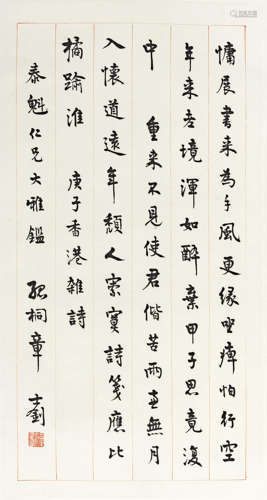 慵展書来為手風更緣痺怕行空
年来老境渾如醉棄甲于思竟復
中 重来不見使君偕苦雨無月
入懷道遠年頹人寂寞詩箋應比
橘踰淮 庚子香港雜詩
泰魁仁兄大雅鑑 孤桐章士釗